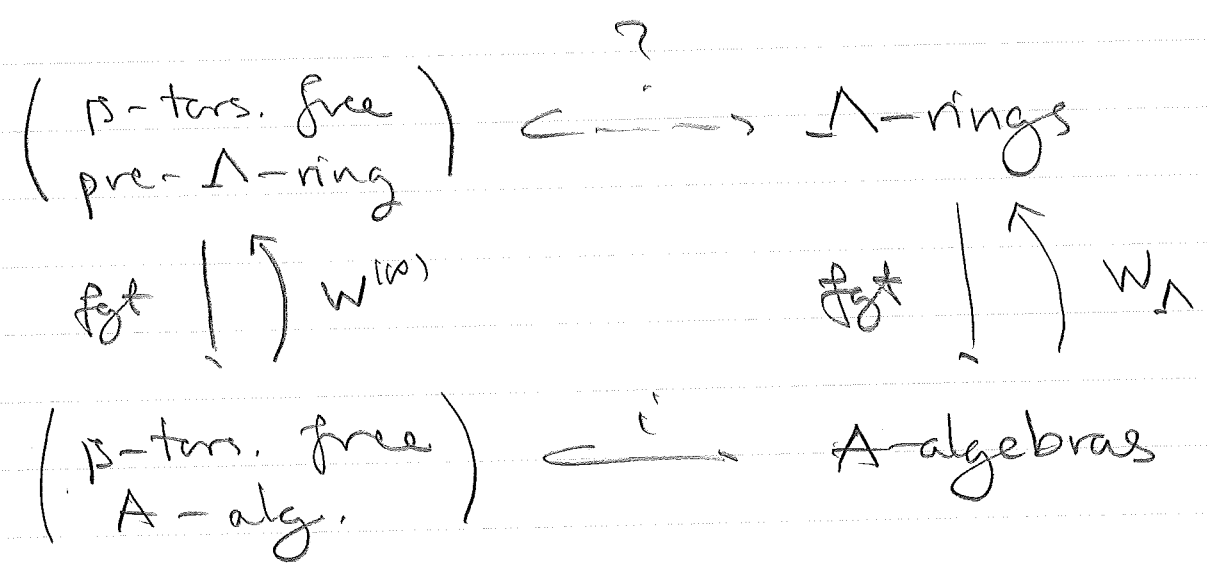 ?
( p-tors. free pre-Λ-ring ) ⤍ Λ-rings
fgt W^(∞) fgt W_Λ
i
( p-tors. free A-alg. ) ↪ A-algebras